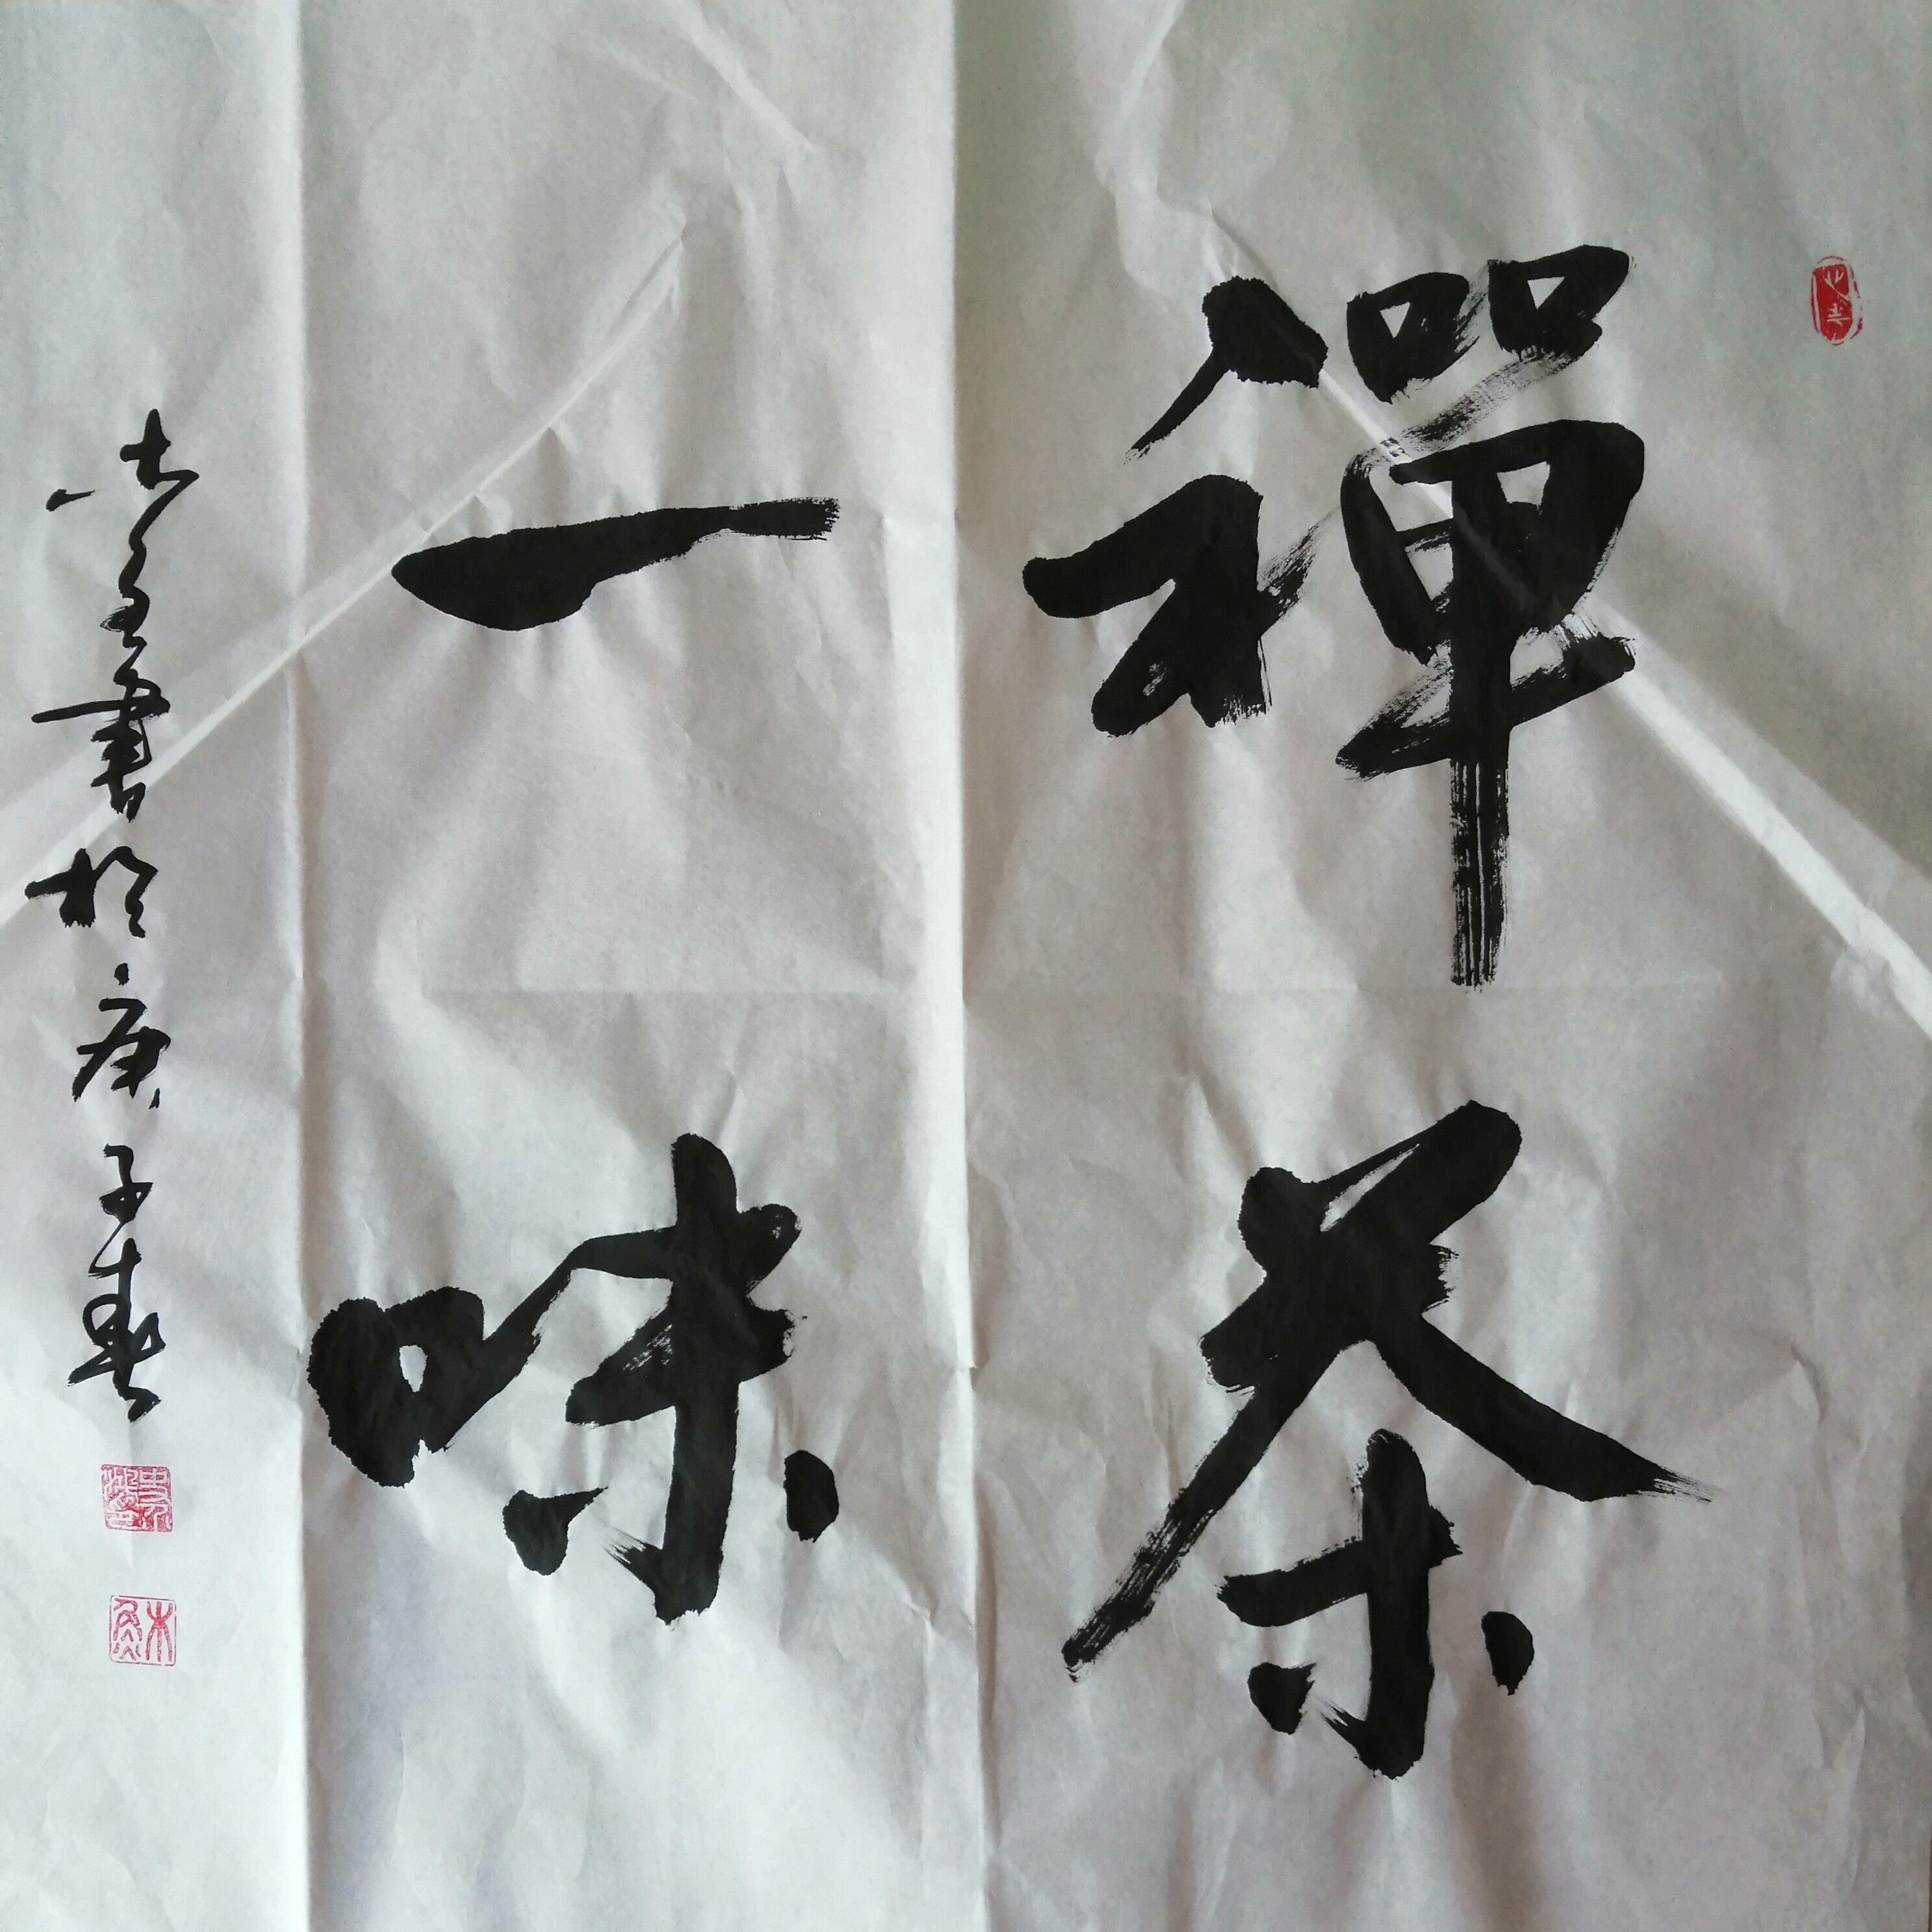 禪茶
一味
書於庚子春